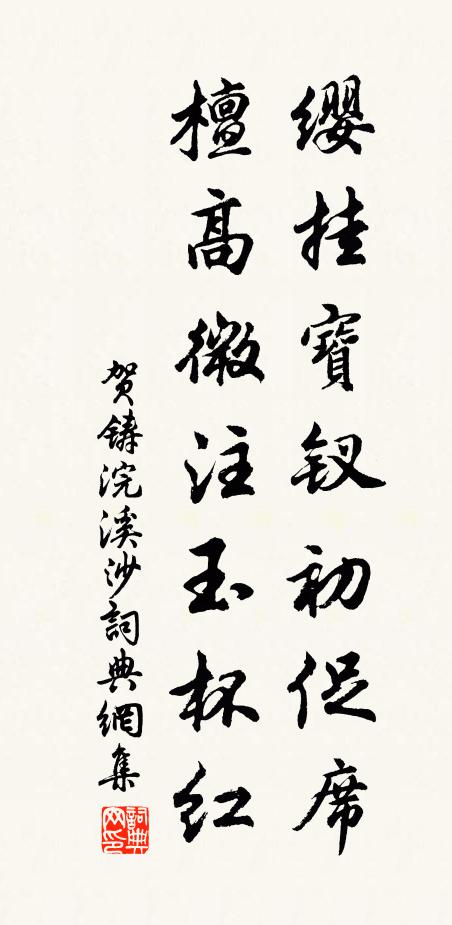 缨挂寶钗初促席
檀高微注玉杯红
贺铸浣溪沙詞典網集
詞典网印